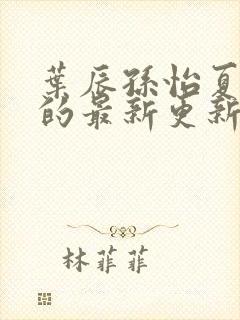 葉辰孫怡夏
的最新更新
林菲菲